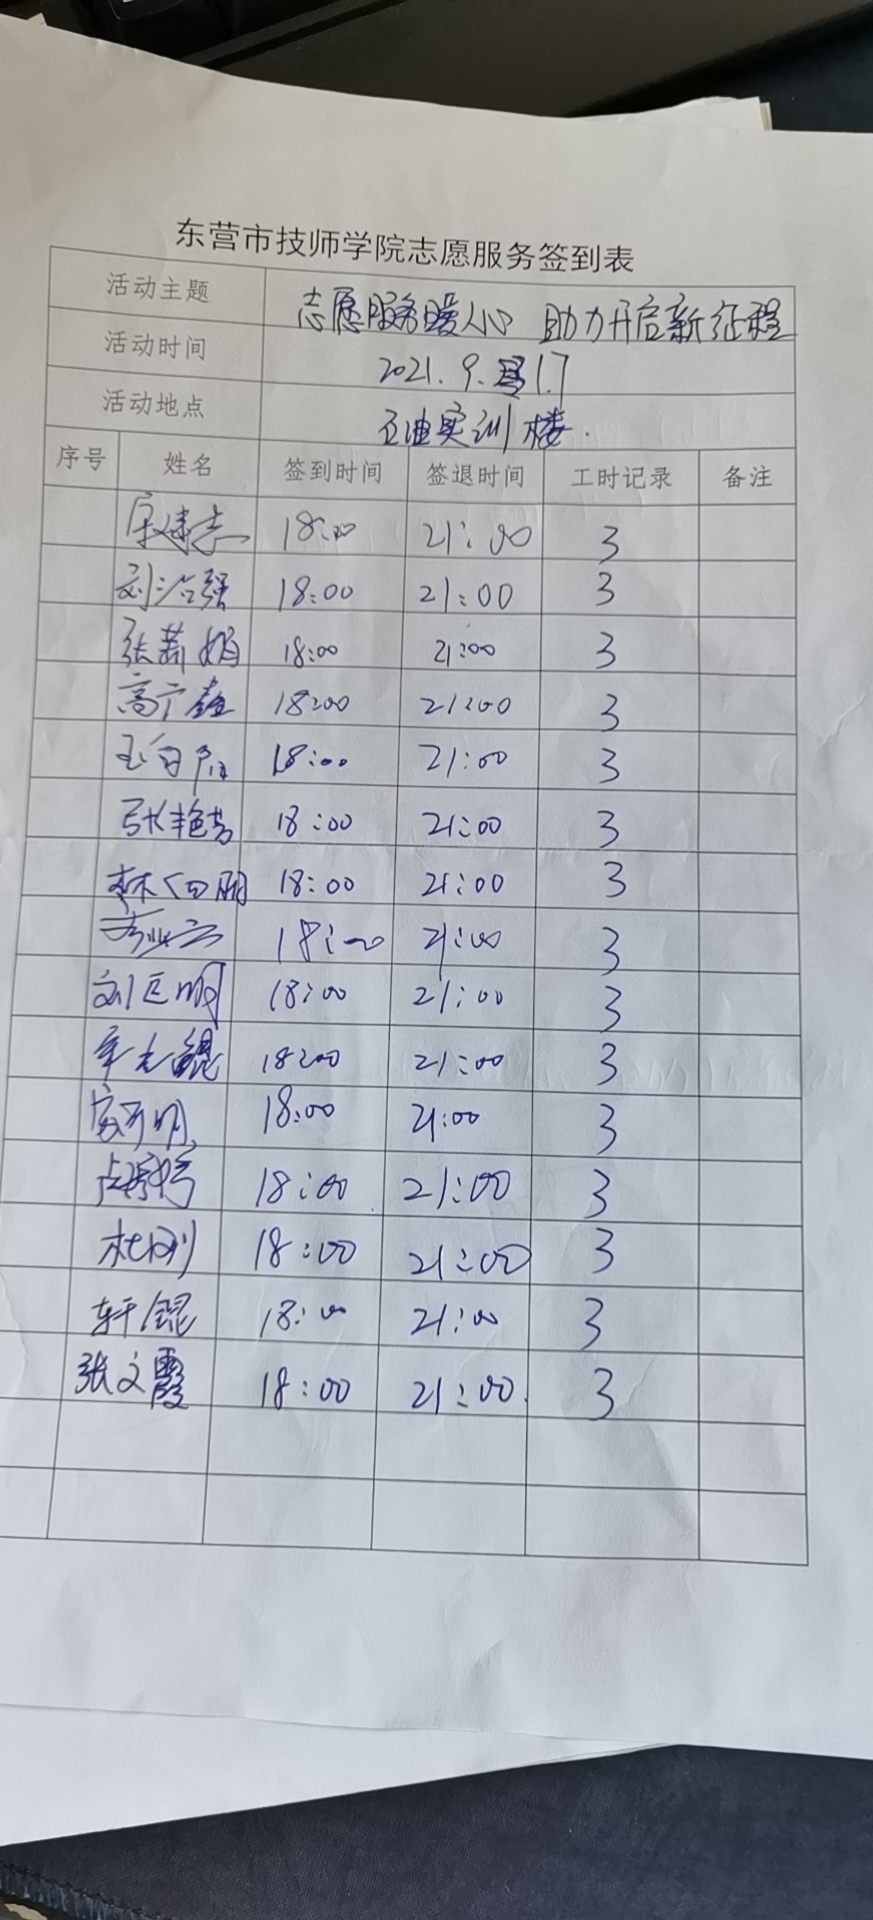 东营市技师学院志愿服务签到表
活动主题 志愿服务暖人心 助力开启新征程
活动时间 2021.9.17
活动地点 实训楼.
序号 姓名 签到时间 签退时间 工时记录 备注
18:00 21:00 3
刘治强 18:00 21:00 3
张 娟 18:00 21:00 3
高广鑫 18:00 21:00 3
18:00 21:00 3
张艳芳 18:00 21:00 3
18:00 21:00 3
18:00 21:00 3
刘 明 18:00 21:00 3
辛志鲲 18:00 21:00 3
18:00 21:00 3
18:00 21:00 3
杜刚 18:00 21:00 3
轩锟 18:00 21:00 3
张文霞 18:00 21:00. 3